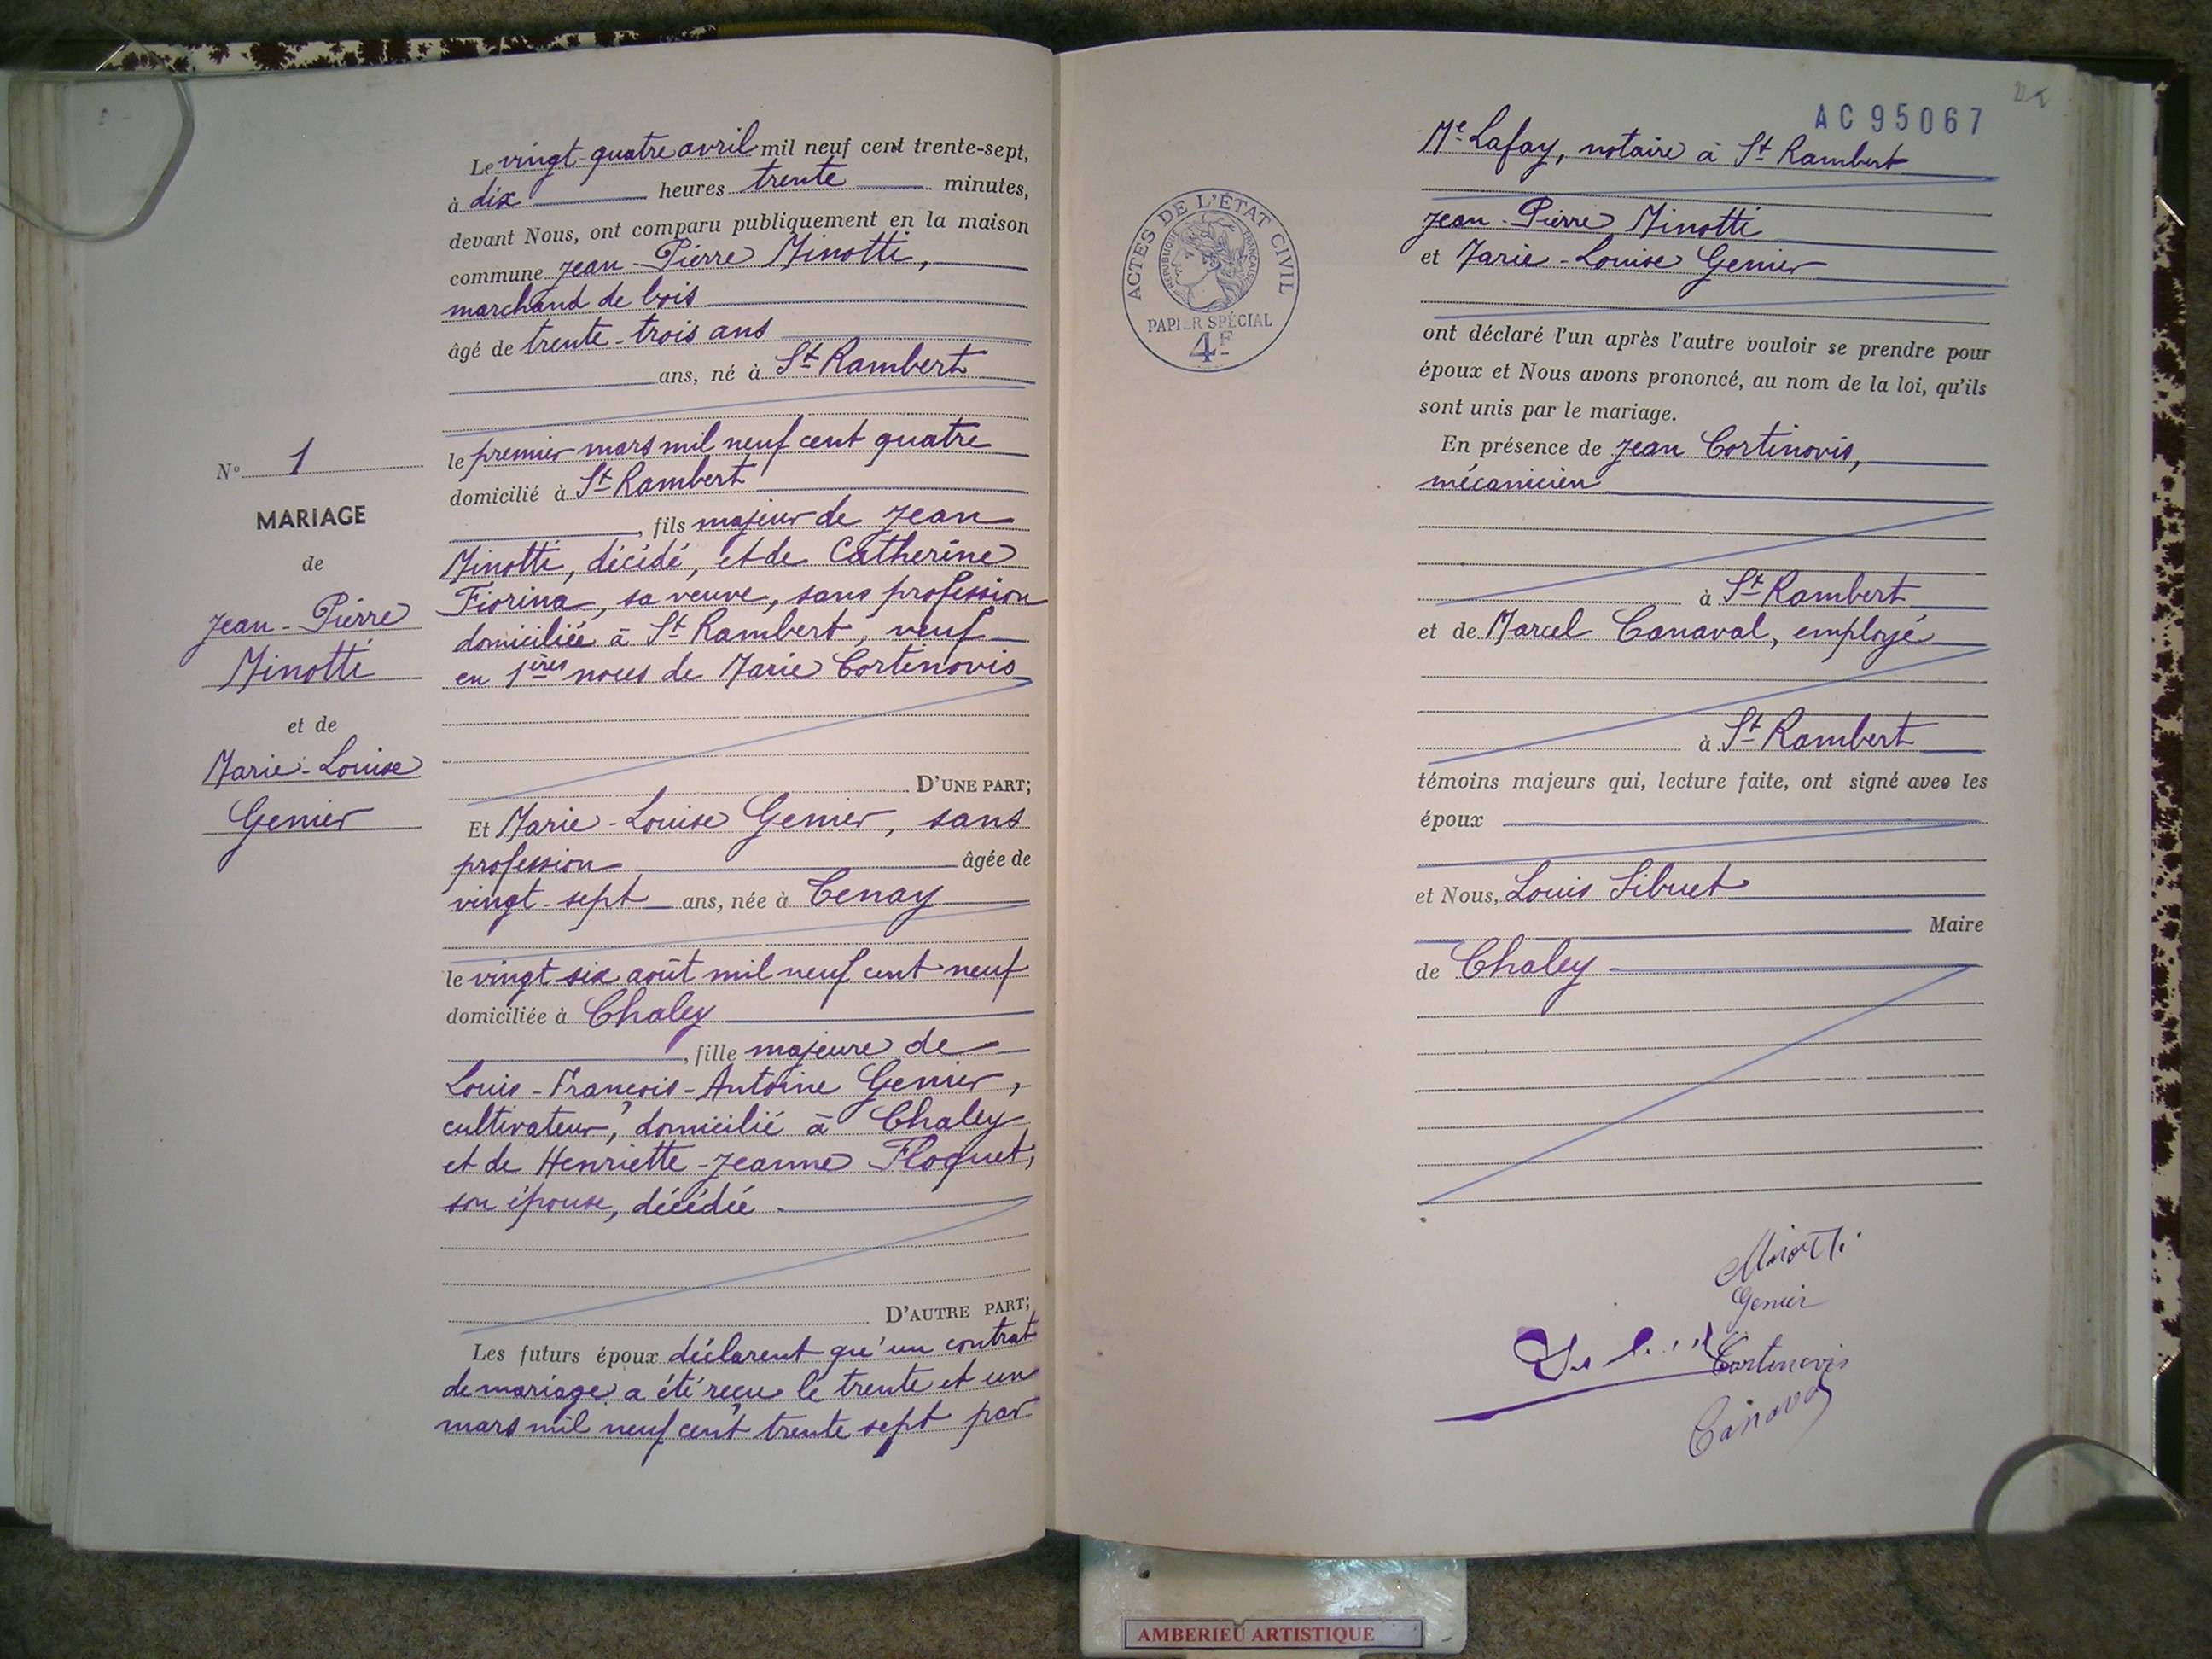 N° 1
MARIAGE
de
Jean-Pierre
Minotti
et de
Marie-Louise
Genier
Le vingt-quatre avril mil neuf cent trente-sept,
à dix heures trente minutes,
devant Nous, ont comparu publiquement en la maison
commune Jean-Pierre Minotti,
marchand de bois
âgé de trente-trois ans
ans, né à St Rambert
le premier mars mil neuf cent quatre
domicilié à St Rambert
, fils majeur de Jean
Minotti, décédé, et de Catherine
Fiorina, sa veuve, sans profession
domiciliée à St Rambert, veuf
en 1ères noces de Marie Cortinovis
D'UNE PART;
Et Marie-Louise Genier, sans
profession âgée de
vingt-sept ans, née à Tenay
le vingt six août mil neuf cent neuf
domiciliée à Chaley
, fille majeure de
Louis-François-Antoine Genier,
cultivateur, domicilié à Chaley
et de Henriette-Jeanne Floquet,
son épouse, décédée.
D'AUTRE PART;
Les futurs époux déclarent qu'un contrat
de mariage a été reçu le trente et un
mars mil neuf cent trente sept par
AC 95067
ACTES DE L'ÉTAT CIVIL
RÉPUBLIQUE FRANÇAISE
PAPIER SPÉCIAL
4F
Me Lafay, notaire à St Rambert
Jean-Pierre Minotti
et Marie-Louise Genier
ont déclaré l'un après l'autre vouloir se prendre pour
époux et Nous avons prononcé, au nom de la loi, qu'ils
sont unis par le mariage.
En présence de Jean Cortinovis,
mécanicien
à St Rambert
et de Marcel Canaval, employé
à St Rambert
témoins majeurs qui, lecture faite, ont signé avec les
époux
et Nous, Louis Sibuet
Maire
de Chaley
Minotti
Genier
Cortinovis
Canaval
AMBERIEU ARTISTIQUE